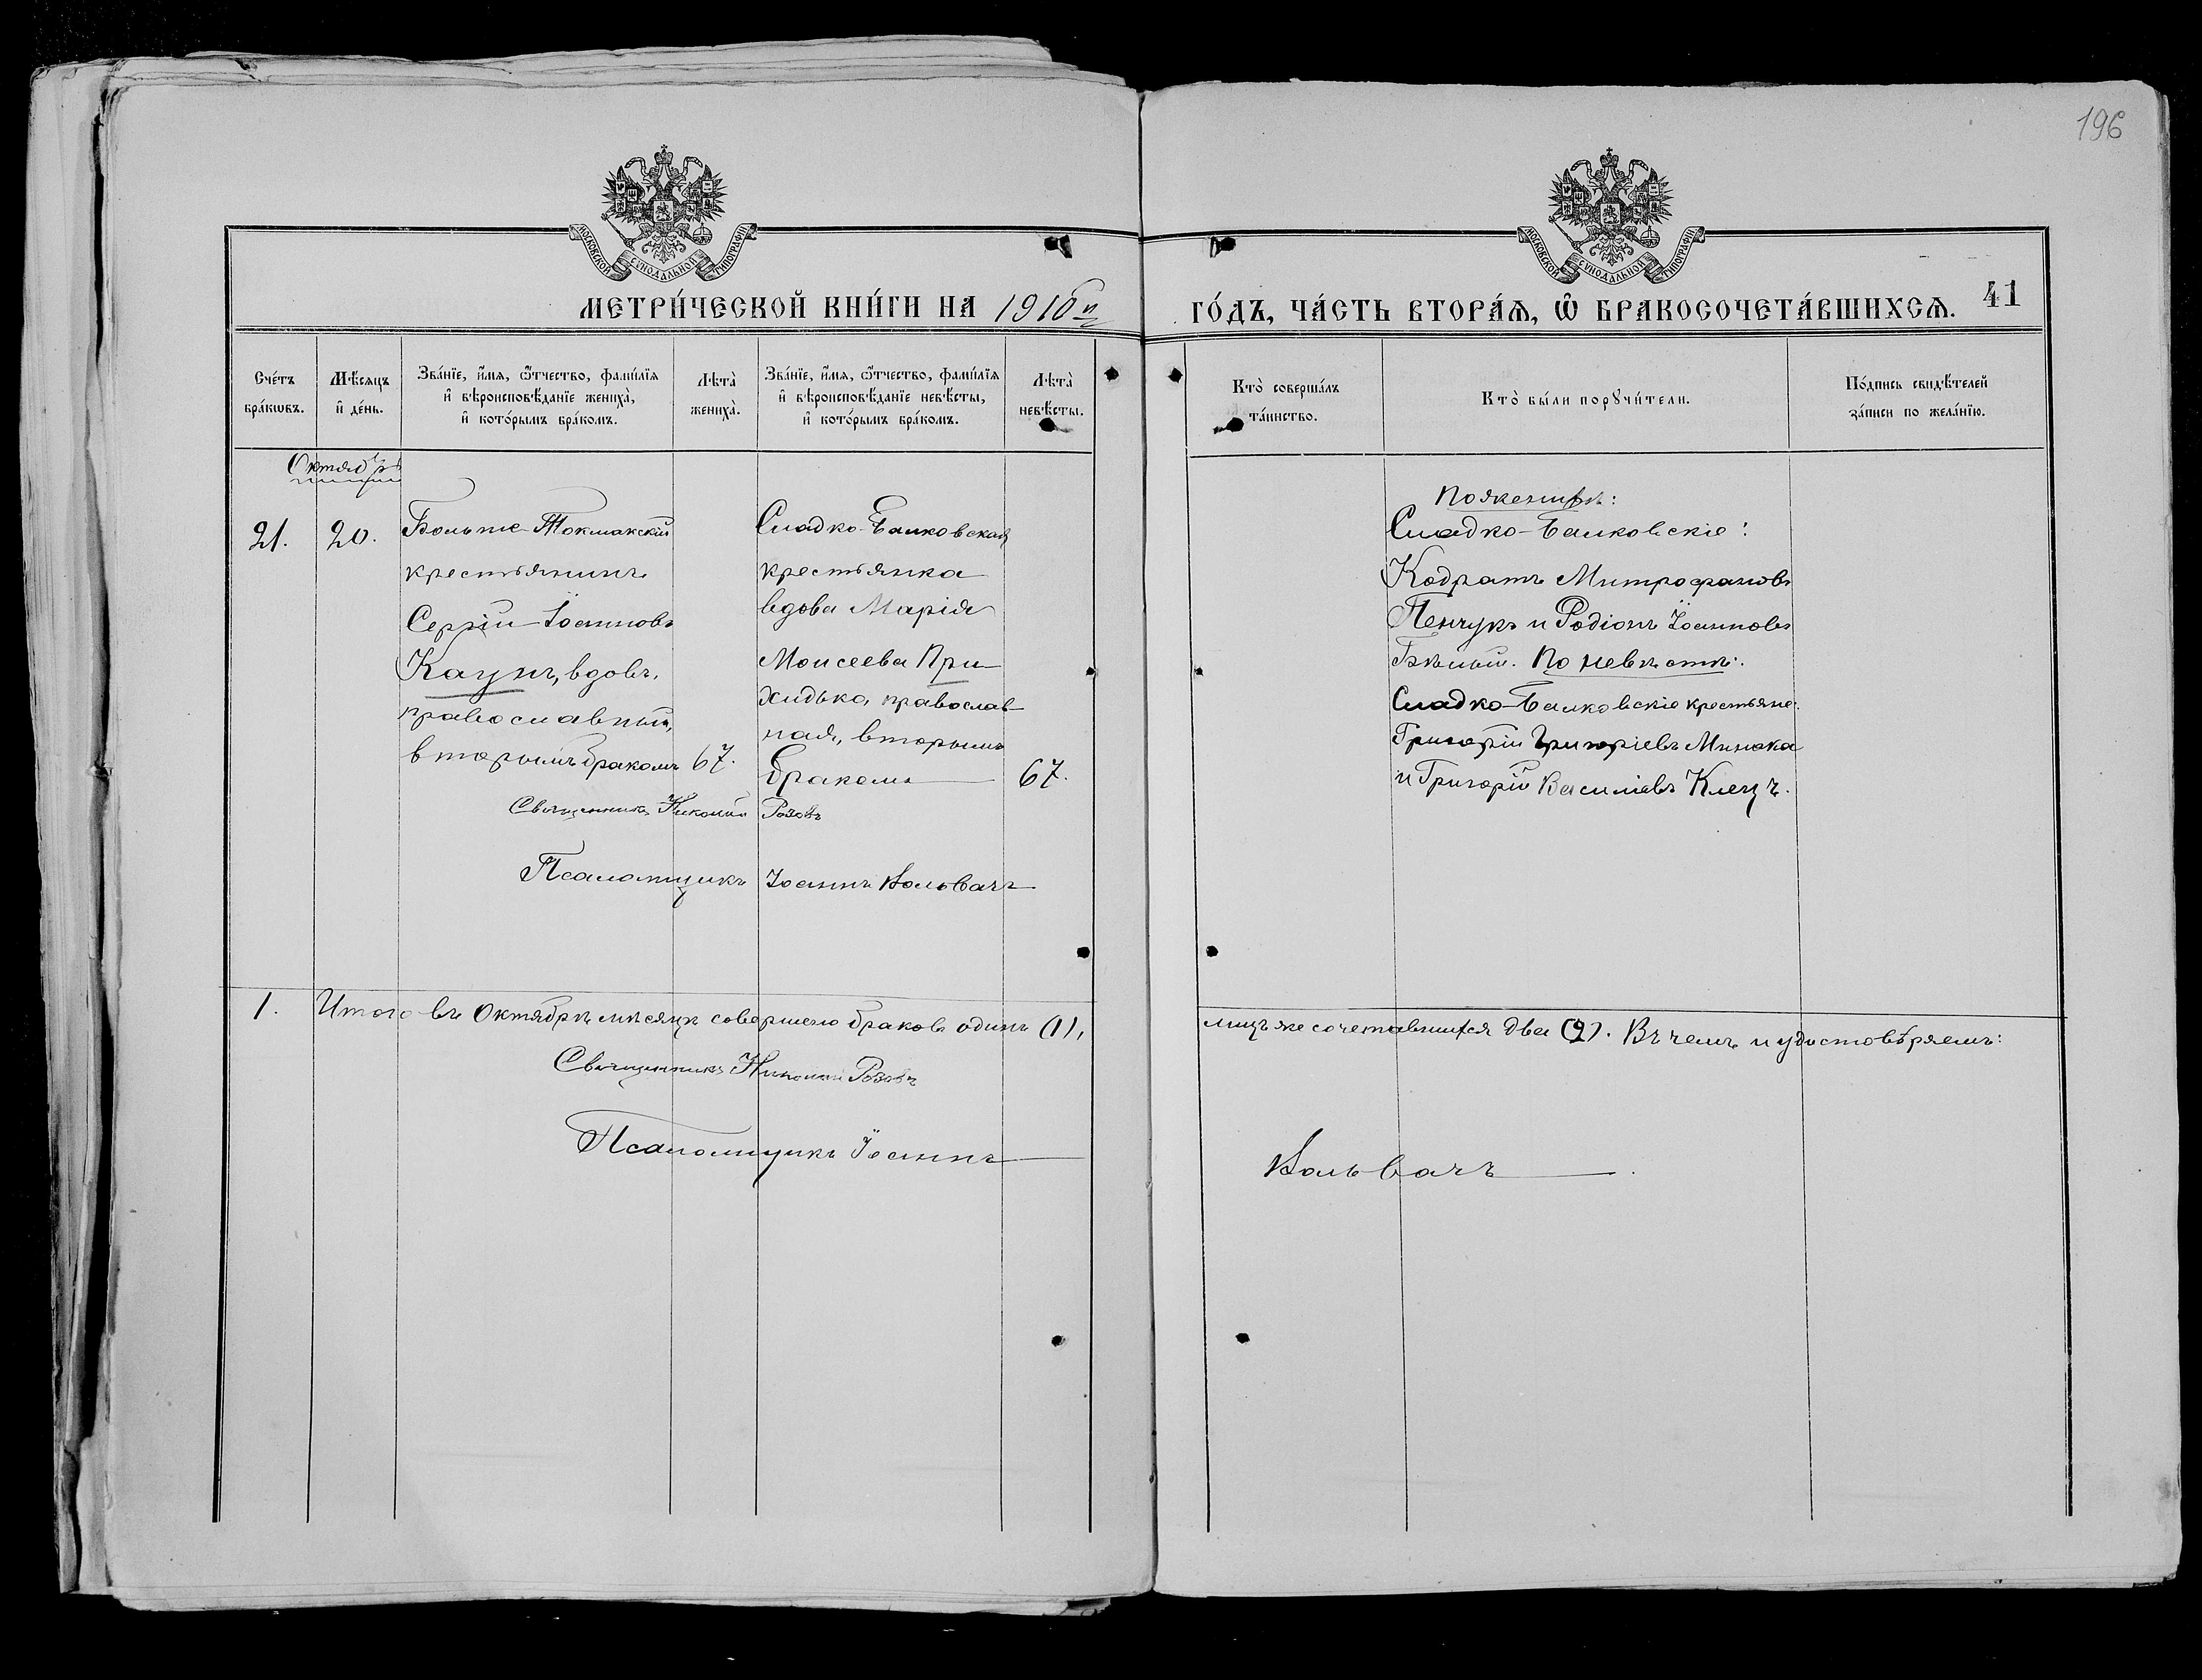 196
МОСКОВСКОЙ СѴНОДАЛЬНОЙ ТИПОГРАФІИ
МОСКОВСКОЙ СѴНОДАЛЬНОЙ ТИПОГРАФІИ
МЕТРИ́ЧЕСКОЙ КНИ́ГИ НА 1910й
ГО́ДЪ, ЧА́СТЬ ВТОРА́Ѧ, Ѽ БРАКОСОЧЕТА́ВШИХСѦ. 41
Сче́тъ бра́кѡвъ.
Мѣ́сяцъ и҆ де́нь.
Зва́нїе, и҆́мя, ѻ҆́тчество, фами́лїя
и҆ вѣроисповѣ́данїе жениха̀,
и҆ кото́рымъ бра́комъ.
Лѣта̀ жениха̀.
Зва́нїе, и҆́мя, ѻ҆́тчество, фами́лїя
и҆ вѣроисповѣ́данїе невѣ́сты,
и҆ кото́рымъ бра́комъ.
Лѣта̀ невѣ́сты.
Кто̀ соверша́лъ та́инство.
Кто̀ бы́ли порꙋчи́тели.
По́дпись свидѣ́телей
за́писи по жела́нїю.
Октябрь
21.
20.
Больше-Токмакскій
крестьянинъ
Сергій Іоанновъ
Каунъ, вдовъ,
православный,
вторымъ бракомъ
67.
Сладко-Балковская
крестьянка
вдова Марія
Моисеева При-
ходько, православ-
ная, вторымъ
бракомъ
67.
По женихѣ:
Сладко-Балковскіе:
Кодратъ Митрофановъ
Пенчукъ и Родіонъ Іоанновъ
Бѣлый. По невѣстѣ:
Сладко-Балковскіе крестьяне:
Григорій Григоріевъ Минака
и Григорій Василіевъ Клецъ.
Священникъ Николай Розовъ
Псаломщикъ Іоаннъ Кольвахъ
1.
Итого въ Октябрѣ мѣсяцѣ совершено браковъ одинъ (1),
лицъ же сочетавшихся два (2). Въ чемъ и удостовѣряемъ:
Священникъ Николай Розовъ
Псаломщикъ Іоаннъ
Кольвахъ